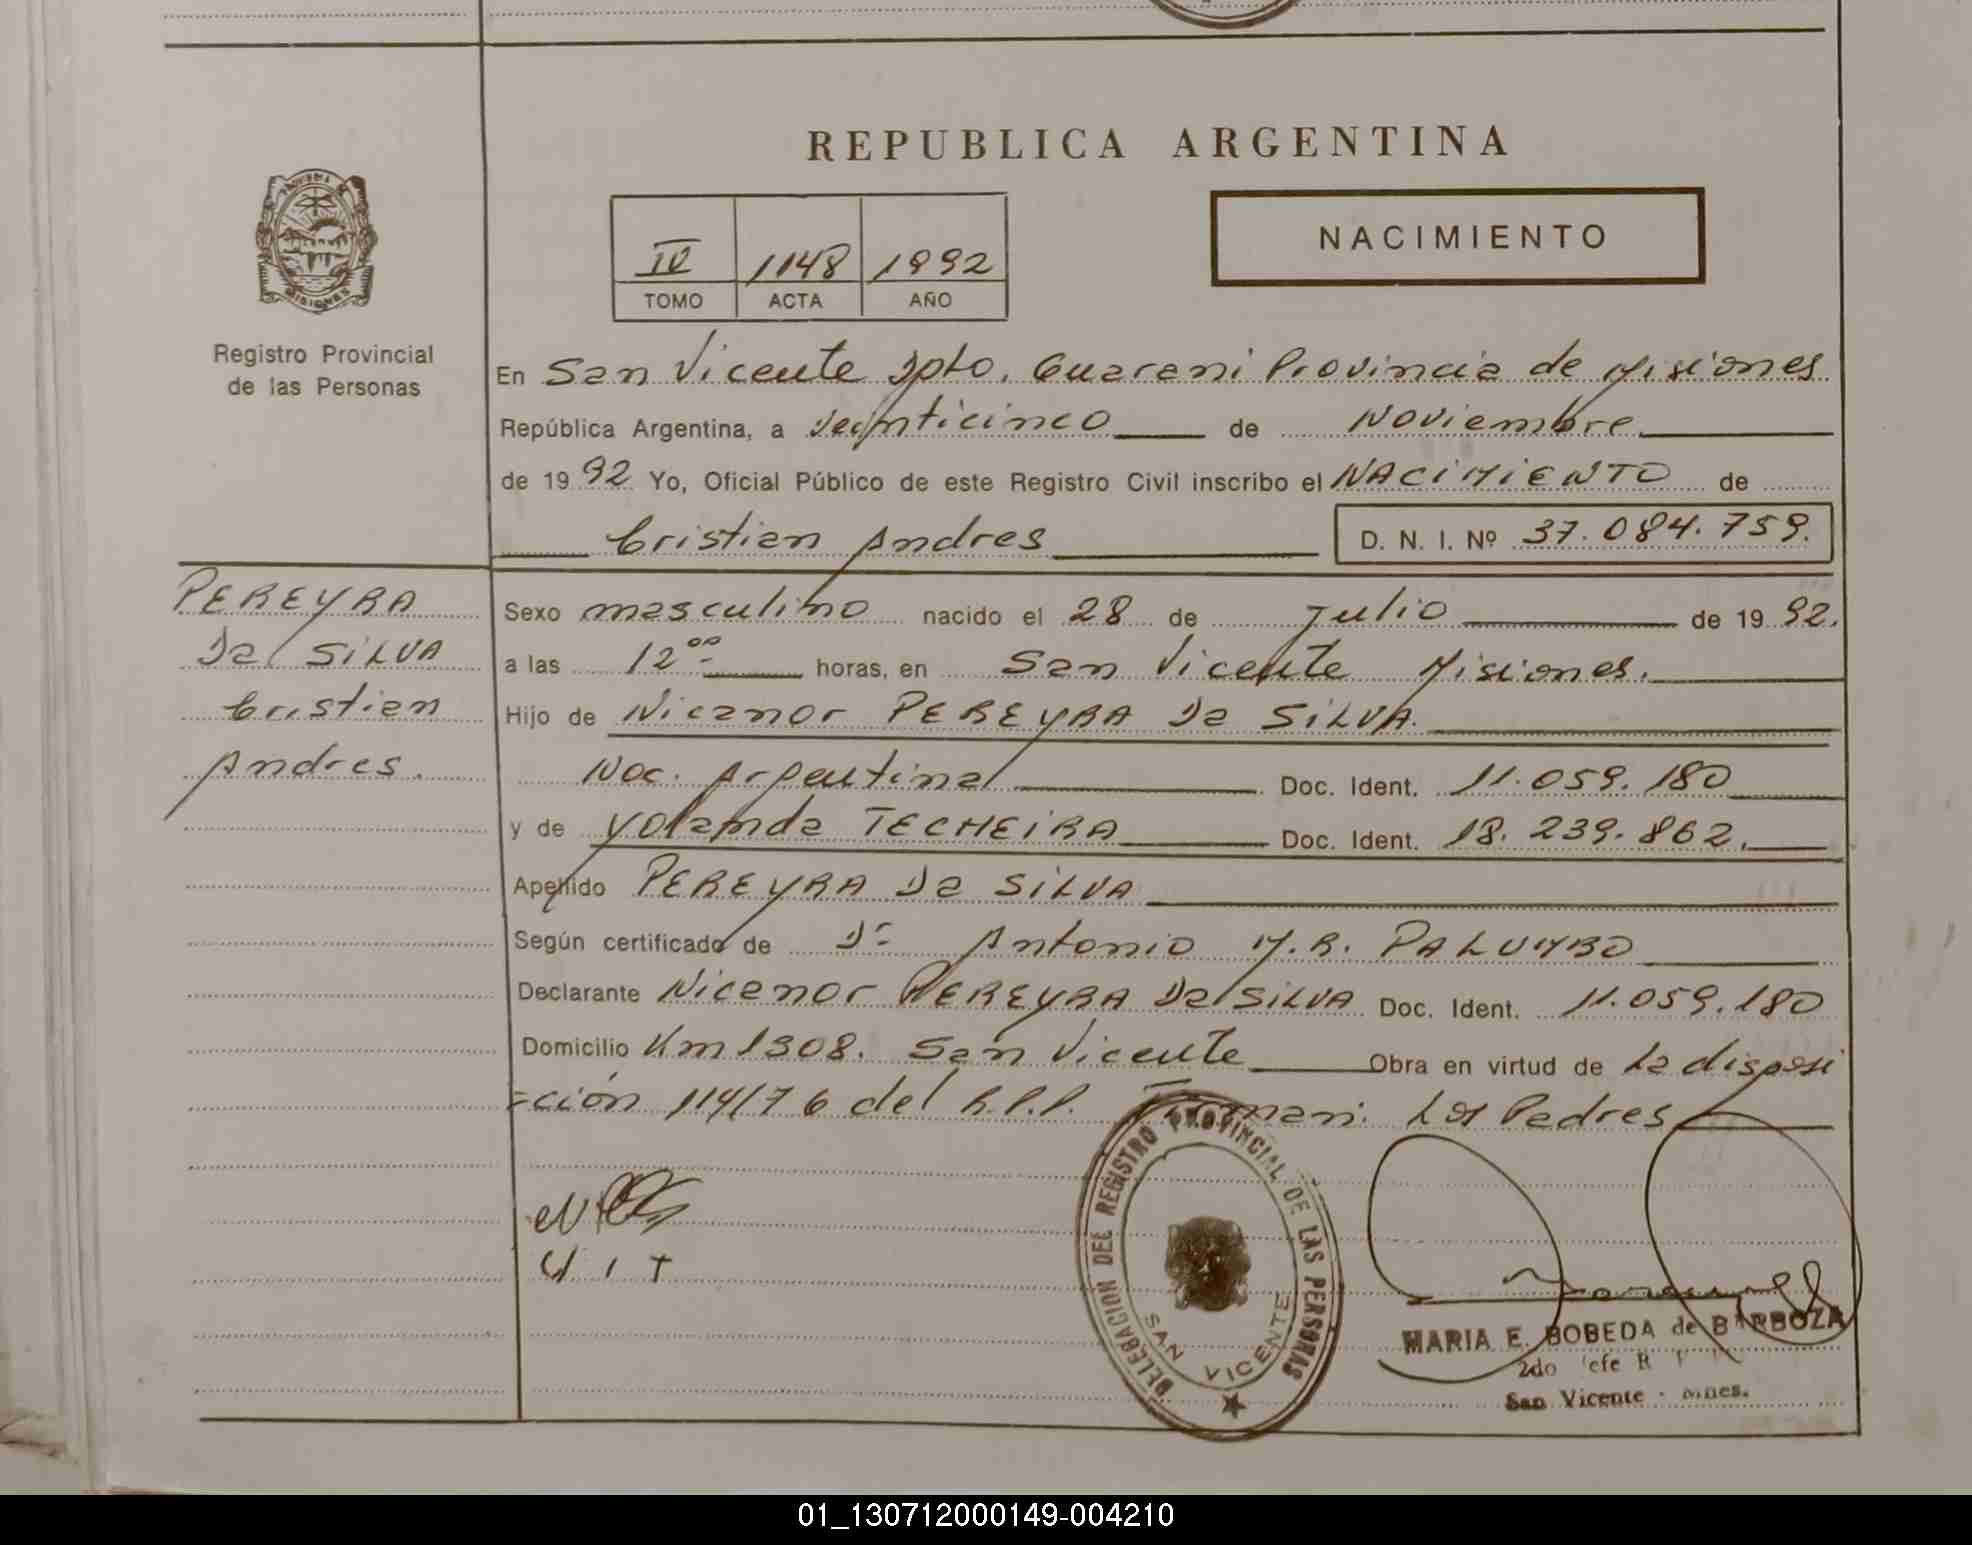 REPUBLICA ARGENTINA
NACIMIENTO
IV 1148 1992
TOMO ACTA AÑO
PROVINCIA DE
MISIONES
Registro Provincial
de las Personas
En San Vicente Dpto. Guarani Provincia de Misiones
República Argentina, a Veinticinco de Noviembre
de 1992 Yo, Oficial Público de este Registro Civil inscribo el NACIMIENTO de
Cristian Andres D. N. I. Nº 37.084.759.
PEREYRA
Da SILVA
Cristian
Andres.
Sexo masculino nacido el 28 de Julio de 1992.
a las 12 00 horas, en San Vicente Misiones.
Hijo de Nicanor PEREYRA Da SILVA.
Nac. Argentina Doc. Ident. 11.059.180
y de Yolanda TECHEIRA Doc. Ident. 18.239.862.
Apellido PEREYRA Da SILVA
Según certificado de Dr Antonio M.R. PALUMBO
Declarante Nicanor PEREYRA Da SILVA Doc. Ident. 11.059.180
Domicilio Km 1308. San Vicente Obra en virtud de La disposi
=ción 114/76 del R.P.P. Firman: Los Padres
DELEGACION DEL REGISTRO PROVINCIAL DE LAS PERSONAS
SAN VICENTE
MARIA E. BOBEDA de BARBOZA
2do Jefe R
San Vicente - Mnes.
01_130712000149-004210